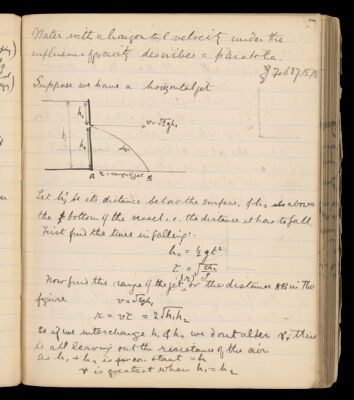 Water with a horizontal velocity under the
influence of gravity describes a parabola.
Feb 27, 1878
Suppose we have a horizontal jet
h₁
v = √2gh₁
h
h₂
A r = range of jet B
Let h₁ be its distance below the surface, & h₂ its above
the bottom of the vessel i.e. the distance it has to fall.
First find the time in falling:-
h₂ = ½ g t²
t = √2h₂/g
Now find the range of the jet (r) or the distance AB in the
figure v = √2gh₁
r = vt = 2√h₁h₂
so if we interchange h₁ & h₂ we dont alter r, this
is all leaving out the resistance of the air
as h₁ + h₂ is constant = h
r is greatest when h₁ = h₂